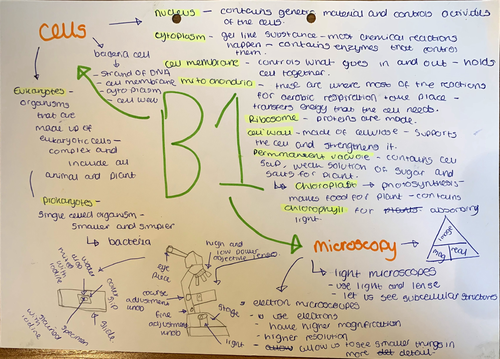 cells
nucleus - contains genetic material and controls activities
of the cells.
cytoplasm - gel like substance - most chemical reactions
happen - contains enzymes that control
them.
cell membrane - controls what goes in and out - holds
cell together.
mitochondria - these are where most of the reactions
for aerobic respiration take place -
transfers energy that the cell needs.
Ribosome - proteins are made.
cell wall - made of cellulose - supports
the cell and strengthens it.
permanent vacuole - contains cell
sap, weak solution of sugar and
salts for plant.
↳ chloroplast → photosynthesis -
makes food for plant - contains
chlorophyll for absorbing
light.
bacteria cell
- strand of DNA
- cell membrane
- cytoplasm
- cell wall
Eukaryotes -
organisms
that are
made up of
eukaryotic cells -
complex and
include all
animal and plant
prokaryotes -
single celled organism -
smaller and simpler
↳ bacteria
B1
microscopy
image
mag real
↳ light microscopes
- use light and lense
- let us see subcellular structures
electron microscopes
↳ use electrons
- have higher magnification
- higher resolution
- allow us to see smaller things in
more detail
high and
low power
objective lenses
eye
piece
coarse
adjustment
knob
fine
adjustment
knob
stage
light
cover
slip
slide
specimen